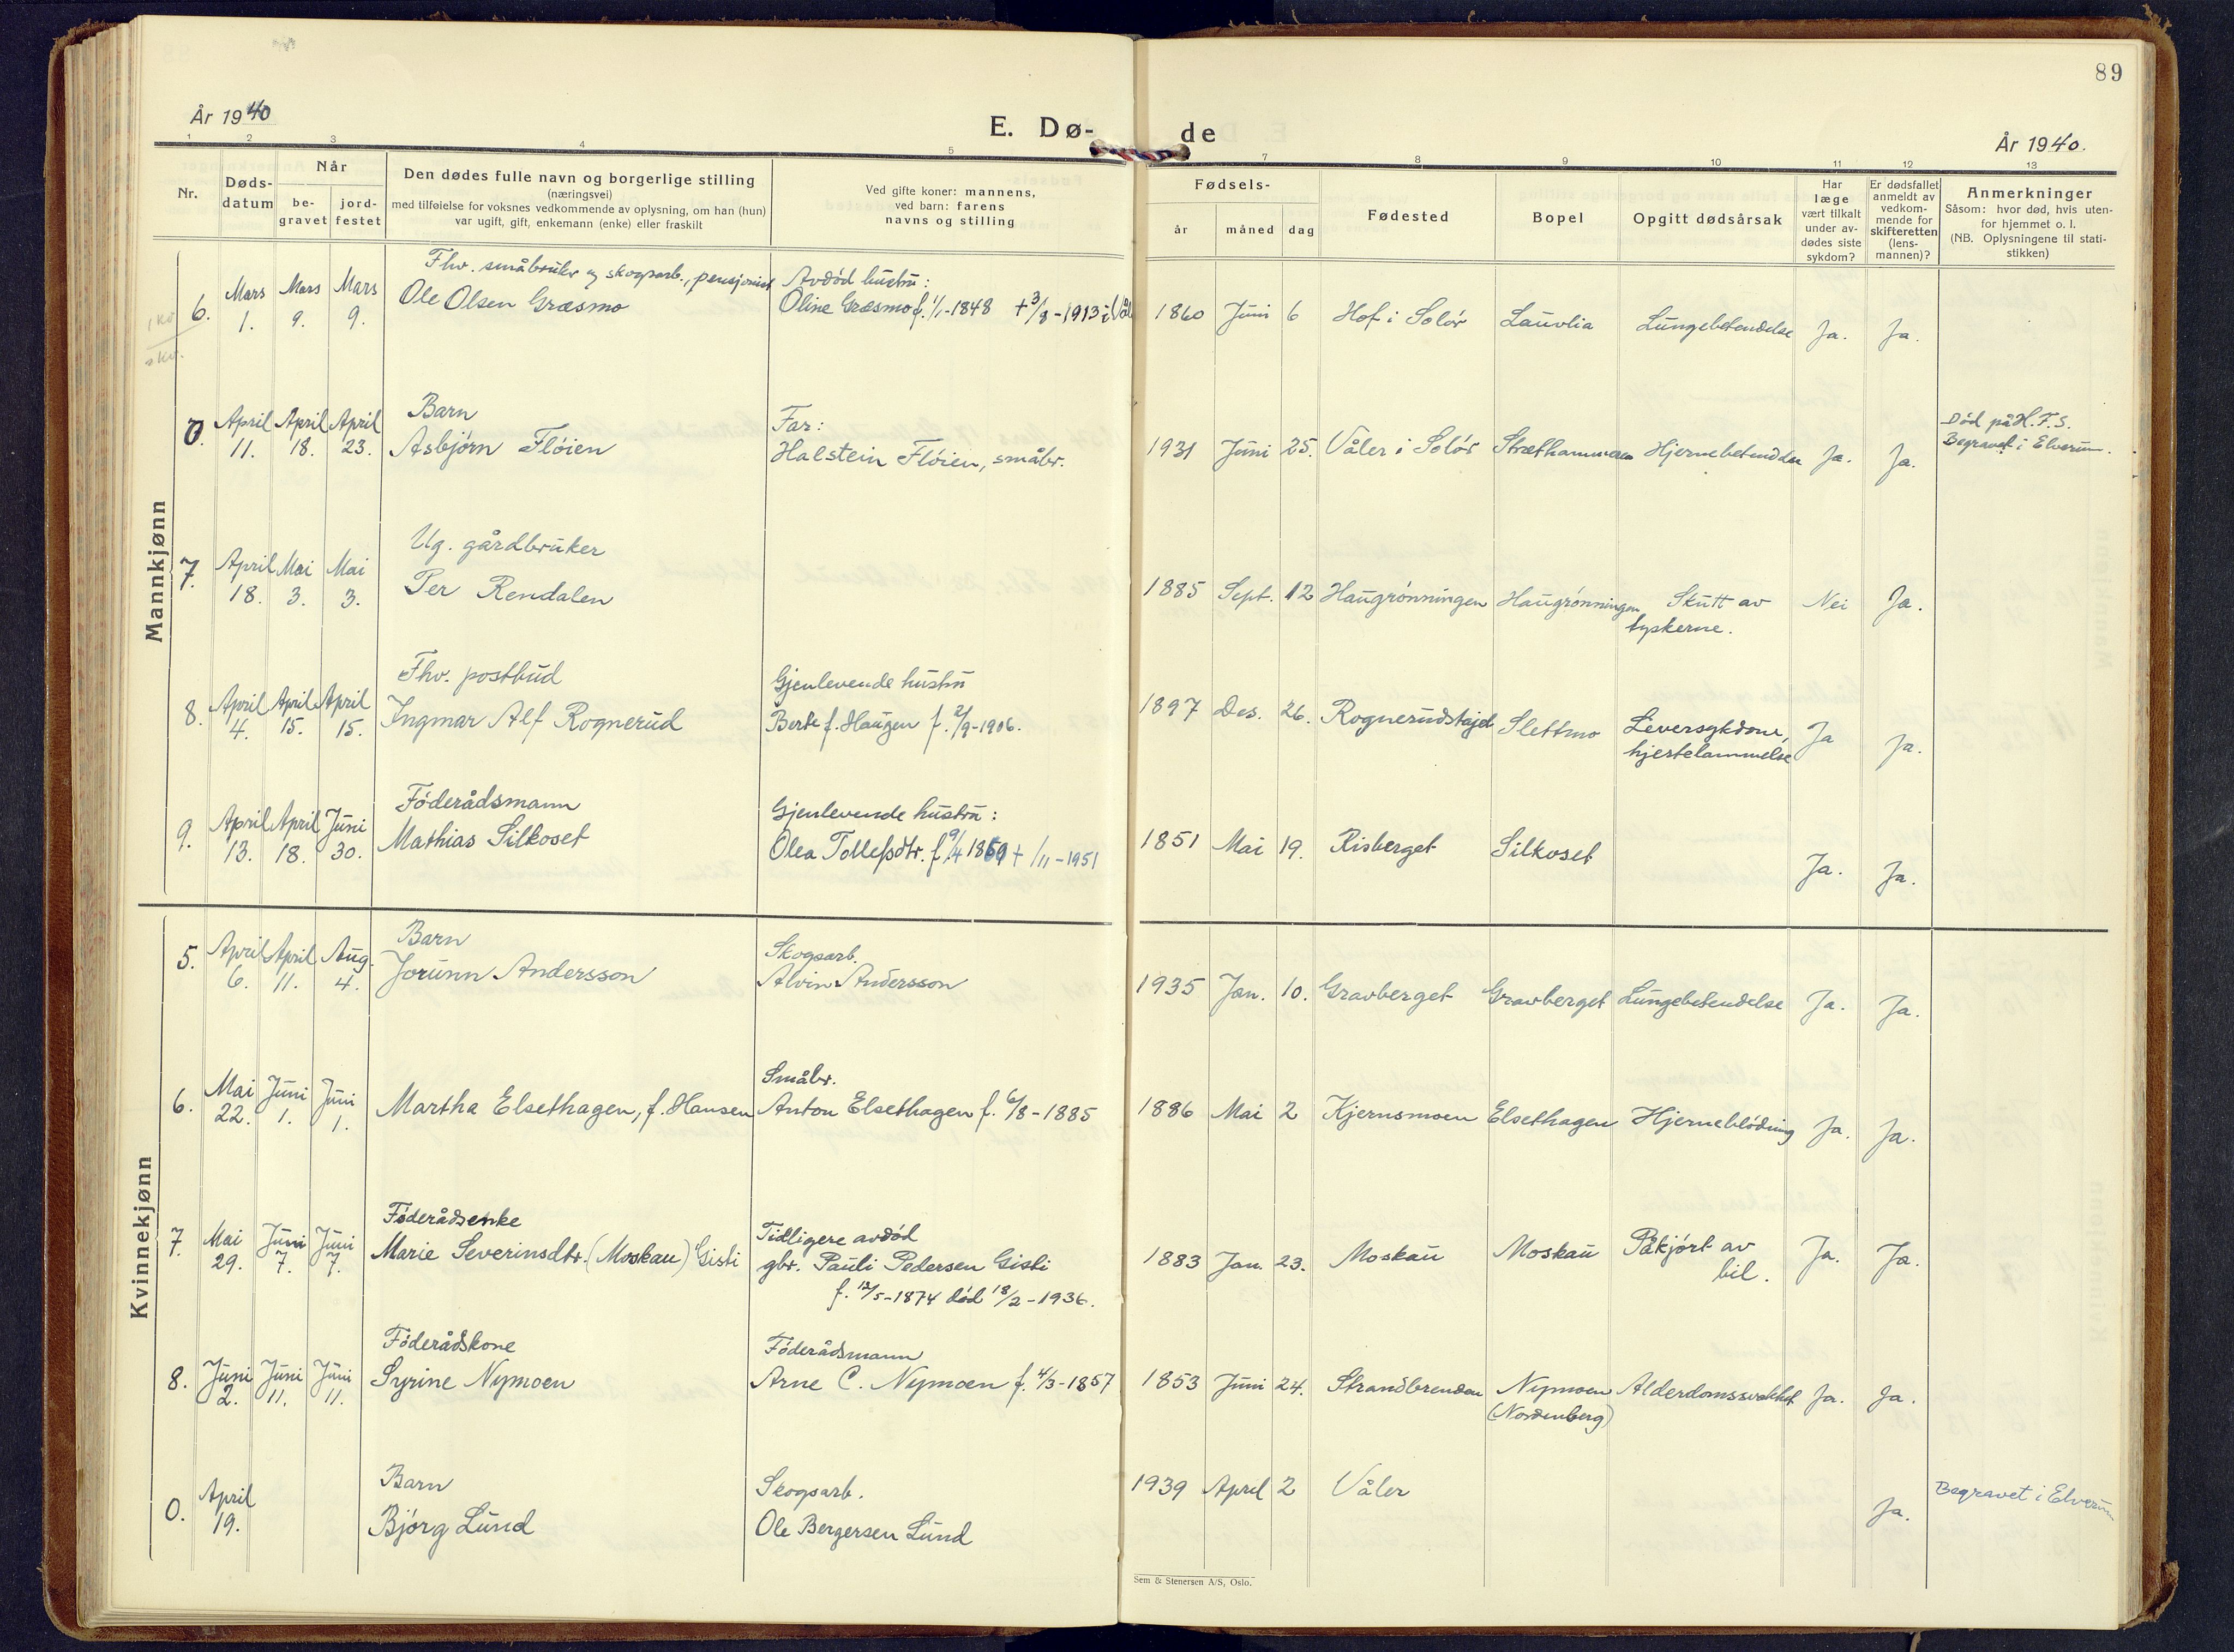 89
År 1940
E. Dø-
de
År 1940.
1 2 3 4 5 7 8 9 10 11 12 13
Nr.
Døds-
datum
Når
be-
gravet
jord-
festet
Den dødes fulle navn og borgerlige stilling
(næringsvei)
med tilføielse for voksnes vedkommende av oplysning, om han (hun)
var ugift, gift, enkemann (enke) eller fraskilt
Ved gifte koner: mannens,
ved barn: farens
navns og stilling
Fødsels-
år måned dag
Fødested
Bopel
Opgitt dødsårsak
Har
læge
vært tilkalt
under av-
dødes siste
sykdom?
Er dødsfallet
anmeldt av
vedkom-
mende for
skifteretten
(lens-
mannen)?
Anmerkninger
Såsom: hvor død, hvis uten-
for hjemmet o. l.
(NB. Oplysningene til stati-
stikken)
Mannkjønn
Fhv. småbruker og skogsarb., pensjonist Avdød hustru:
6. Mars Mars Mars Ole Olsen Græsmo Oline Græsmo f. 1/1-1848 + 3/8-1913 i 1860 Juni 6 Hof i Solør Lauvlia Lungebetendelse Ja. Ja.
1. 9. 9.
Barn Far: Død på H.F.S.
0. April April April Asbjørn Fløien Halstein Fløien, småbr. 1931 Juni 25. Våler i Solør Hjernebetendelse Ja. Ja. Begravet i Elverum.
11. 18. 23.
Ug. gårdbruker
7. April Mai Mai Per Rendalen 1885 Sept. 12 Haugrønningen Haugrønningen Skutt av Nei Ja.
18. 3. 3. tyskerne.
Fhv. postbud Gjenlevende hustru
8. April April April Ingmar Alf Rognerud Berte f. Haugen f. 2/9-1906. 1897 Des. 26. Slettmo Leversykdom, Ja Ja.
4. 15. 15. hjertelammelse
Føderådsmann Gjenlevende hustru:
9. April April Juni Mathias Silkoset Olea Tollefsdtr. f. 9/4 1869 + /11-1951 1851 Mai 19. Risberget Silkoset Ja. Ja.
13. 18. 30.
Kvinnekjønn
Barn Skogsarb.
5. April April Aug. Jorunn Andersson Alvin Andersson 1935 Jan. 10. Gravberget Gravberget Lungebetendelse Ja. Ja.
6. 11. 4.
Småbr.
6. Mai Juni Juni Martha Elsethagen, f. Hansen Anton Elsethagen f. 6/8-1885 1886 Mai 2 Kjernsmoen Elsethagen Hjerneblødning Ja. Ja.
22. 1. 1.
Føderådsenke Tidligere avdød
7. Mai Juni Juni Marie Severinsdtr. (Moskau) Gisti gbr. Pauli Pedersen Gisti 1883 Jan. 23. Moskau Moskau Påkjørt av Ja. Ja.
29. 7. 7. f. 12/5-1874 død 18/2-1936. bil.
Føderådskone Føderådsmann
8. Juni Juni Juni Syrine Nymoen Arne C. Nymoen f. 4/3-1857 1853 Juni 24. Strandbrenden Nymoen Alderdomssvakhet Ja. Ja.
2. 11. 11. (Nordenberg)
Barn Skogsarb.
0. April Bjørg Lund Ole Bergersen Lund 1939 April 2 Våler Ja. Begravet i Elverum
19.
Sem & Stenersen A/S, Oslo.